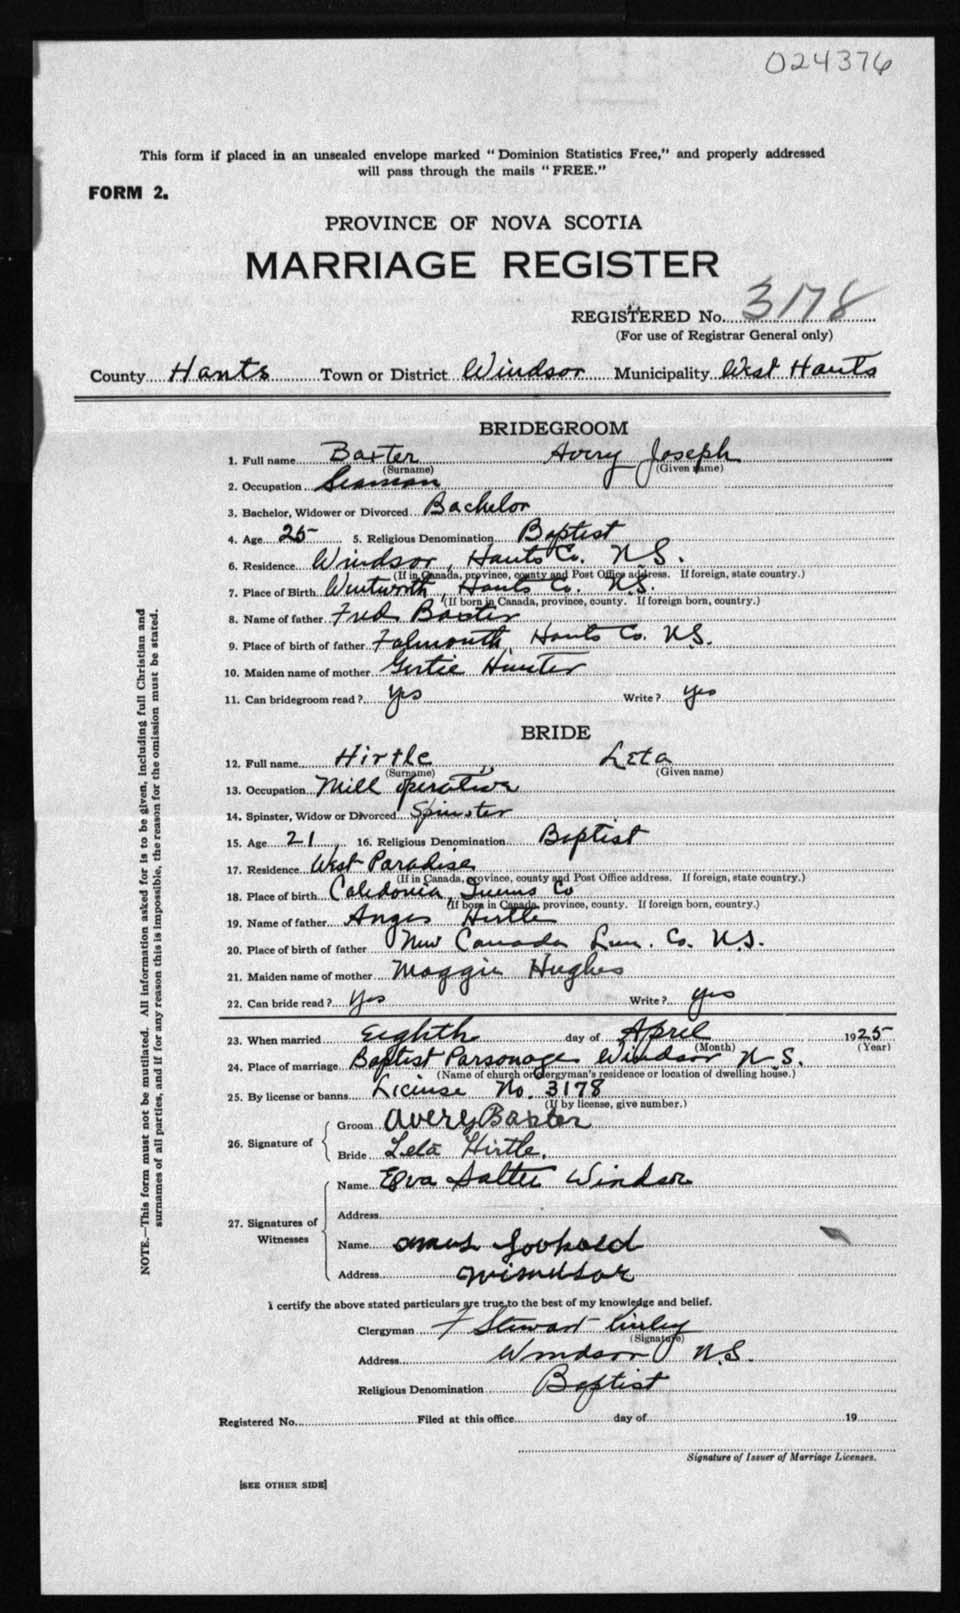 024376
This form if placed in an unsealed envelope marked "Dominion Statistics Free," and properly addressed
will pass through the mails "FREE."
FORM 2.
PROVINCE OF NOVA SCOTIA
MARRIAGE REGISTER
REGISTERED No. 3178
(For use of Registrar General only)
County Hants Town or District Windsor Municipality West Hants
BRIDEGROOM
1. Full name Baxter Avery Joseph
(Surname) (Given name)
2. Occupation Seaman
3. Bachelor, Widower or Divorced Bachelor
4. Age 25 5. Religious Denomination Baptist
6. Residence Windsor, Hants Co. N.S.
(If in Canada, province, county and Post Office address. If foreign, state country.)
7. Place of Birth Wentworth, Hants Co. N.S.
(If born in Canada, province, county. If foreign born, country.)
8. Name of father Fred Baxter
9. Place of birth of father Falmouth, Hants Co. N.S.
10. Maiden name of mother Gertie Hunter
11. Can bridegroom read? Yes Write? Yes
BRIDE
12. Full name Hirtle Leta
(Surname) (Given name)
13. Occupation Mill operative
14. Spinster, Widow or Divorced Spinster
15. Age 21, 16. Religious Denomination Baptist
17. Residence West Paradise
(If in Canada, province, county and Post Office address. If foreign, state country.)
18. Place of birth Caledonia, Queens Co
(If born in Canada, province, county. If foreign born, country.)
19. Name of father Angus Hirtle
20. Place of birth of father New Canada Lun. Co. N.S.
21. Maiden name of mother Maggie Hughes
22. Can bride read? Yes Write? Yes
23. When married Eighth day of April 1925
(Month) (Year)
24. Place of marriage Baptist Parsonage Windsor N.S.
(Name of church or clergyman's residence or location of dwelling house.)
25. By license or banns License No. 3178
(If by license, give number.)
26. Signature of Groom Avery Baxter
Bride Leta Hirtle.
27. Signatures of Witnesses
Name Elva Salter Windsor
Address
Name
Address Windsor
I certify the above stated particulars are true to the best of my knowledge and belief.
Clergyman F Stewart
(Signature)
Address Windsor N.S.
Religious Denomination Baptist
Registered No. Filed at this office day of 19
Signature of Issuer of Marriage Licenses.
[SEE OTHER SIDE]
NOTE.—This form must not be mutilated. All information asked for is to be given, including full Christian and
surnames of all parties, and if for any reason this is impossible, the reason for the omission must be stated.